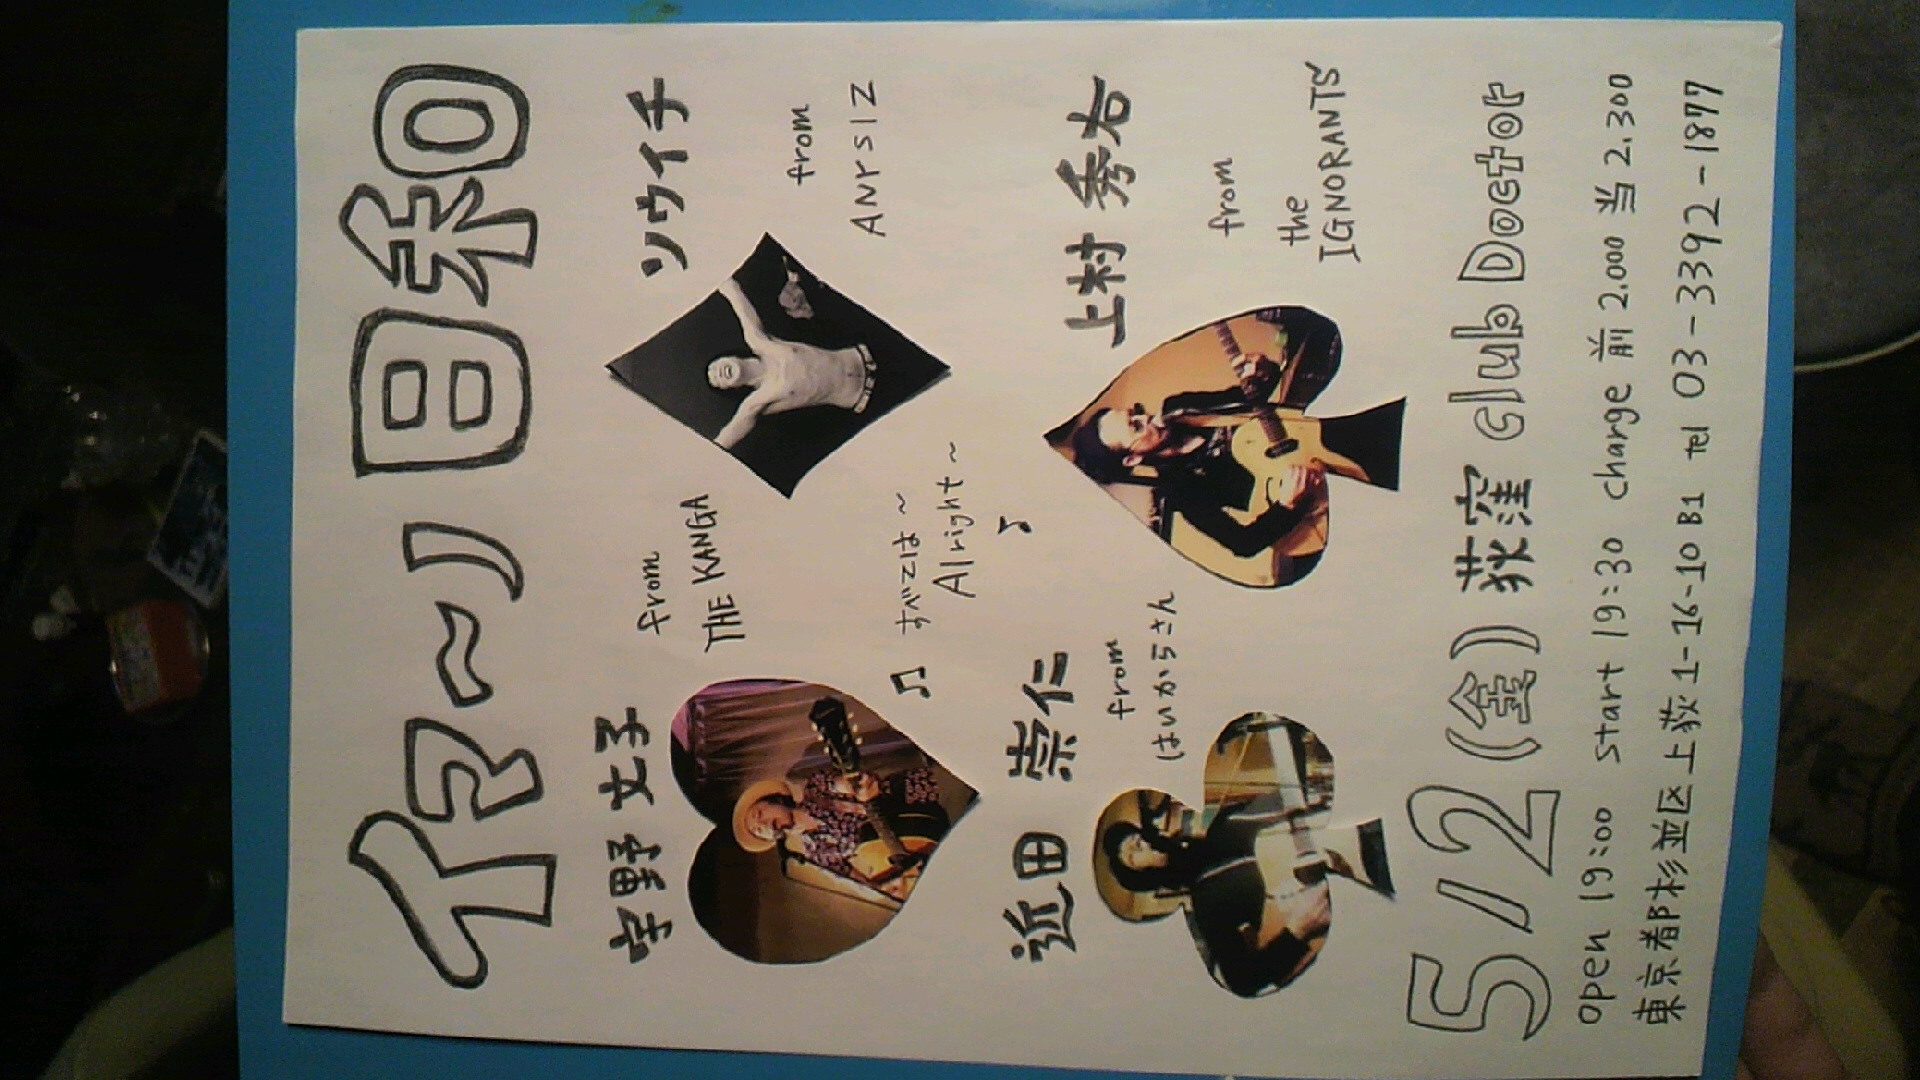 イマ～ノ日和
宇野 丈子
from
THE KANGA
ソウイチ
from
ANrSIZ
♫ すべては～
Alright～
♪
近田 崇仁
from
はいからさん
上村 秀右
from
the
IGNORANTS
5/2 (金) 荻窪 club Doctor
open 19:00 start 19:30 charge 前 2.000 当 2.300
東京都杉並区上荻 1-16-10 B1 tel 03-3392-1877